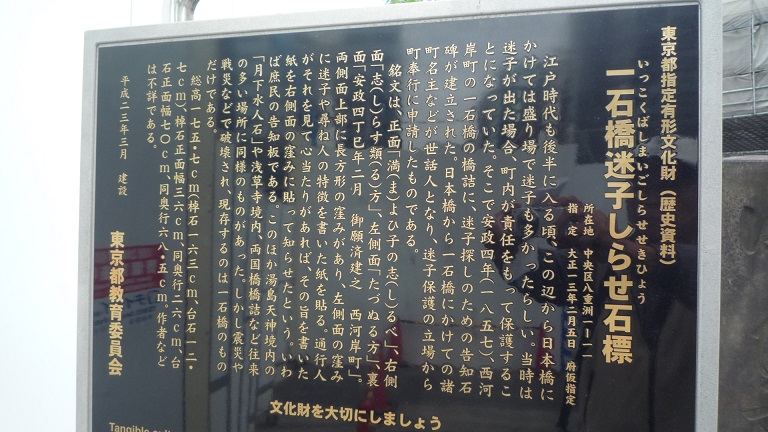 東京都指定有形文化財(歴史資料)
いっこくばしまいごしらせせきひょう
一石橋迷子しらせ石標
所在地 中央区八重洲一-一一
指定 大正一三年二月五日 府仮指定
江戸時代も後半に入る頃、この辺から日本橋に
かけては盛り場で迷子も多かったらしい。当時は
迷子が出た場合、町内が責任をもって保護するこ
とになっていた。そこで安政四年(一八五七)、西河
岸町の一石橋の橋詰に、迷子探しのための告知石
碑が建立された。日本橋から一石橋にかけての諸
町名主などが世話人となり、迷子保護の立場から
町奉行に申請したものである。
銘文は、正面「満(ま)よひ子の志(し)るべ」、右側
面「志(し)らす類(る)方」、左側面「たづぬる方」、裏
面「安政四丁巳年二月 御願済建之 西河岸町」。
両側面上部に長方形の窪みがあり、左側面の窪み
に迷子や尋ね人の特徴を書いた紙を貼る。通行人
がそれを見て心当たりがあれば、その旨を書いた
紙を右側面の窪みに貼って知らせたという、いわ
ば庶民の告知板である。このほか湯島天神境内の
「月下氷人石」や浅草寺境内、両国橋橋詰など往来
の多い場所に同様のものがあった。しかし震災や
戦災などで破壊され、現存するのは一石橋のもの
だけである。
総高一七五・七㎝(棹石一六三㎝、台石一二・
七㎝)、棹石正面幅三六㎝、同奥行二六㎝、台
石正面幅七〇㎝、同奥行六八・五㎝。作者など
は不詳である。
平成二三年三月 建設
東京都教育委員会
文化財を大切にしましょう
Tangible